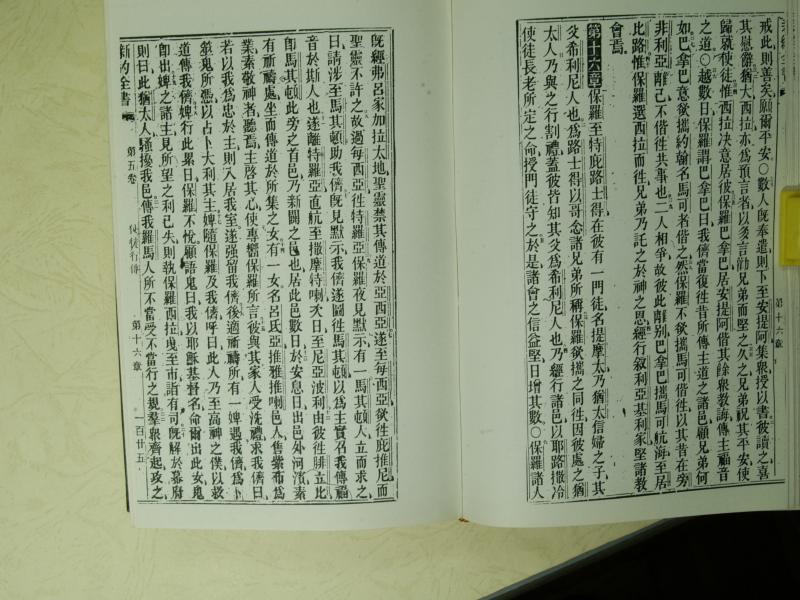 戒此則善矣願爾平安○數人旣奉遣則下至安提阿集衆授以書彼讀之喜
其慰藉猶大西拉亦爲預言者以多言勸兄弟而堅之久之兄弟祝其平安使
歸就使徒惟西拉决意居彼保羅巴拿巴居安提阿偕其餘衆教誨傳主福音
之道○越數日保羅謂巴拿巴曰我儕當復往昔所傳主道之諸邑顧兄弟何
如巴拿巴意欲攜約翰名馬可者偕之然保羅不欲攜馬可偕往以其昔在旁
非利亞離己不偕往共事也二人相爭故彼此離別巴拿巴攜馬可航海至居
比路惟保羅選西拉而往兄弟乃託之於神之恩經行敘利亞基利家堅諸教
會焉
第十六章保羅至特庇路士得在彼有一門徒名提摩太乃猶太信婦之子其
父希利尼人也爲路士得以哥念諸兄弟所稱保羅欲攜之同往因彼處之猶
太人乃與之行割禮蓋彼皆知其父爲希利尼人也乃經行諸邑以耶路撒冷
使徒長老所定之命授門徒守之於是諸會之信益堅日增其數○保羅諸人
旣經弗呂家加拉太地聖靈禁其傳道於亞西亞遂至每西亞欲往庇推尼而
聖靈不許之故過每西亞往特羅亞保羅夜見默示有一馬其頓人立而求之
曰請涉至馬其頓助我儕旣見默示我儕遂圖往馬其頓以爲主實召我傳福
音於斯人也遂離特羅亞直航至撒摩特喇次日至尼亞波利由彼往腓立比
卽馬其頓此旁之首邑乃新闢之邑也居此邑數日於安息日出邑外河濱素
有祈禱處坐而傳道於所集之女有一女名呂氏亞推雅推喇邑人售紫布爲
業素敬神者聽焉主啓其心使專嚮保羅所言彼與其家人受洗禮求我儕曰
若以我爲忠於主則入居我室遂強留我儕後適祈禱所有一婢遇我儕爲卜
筮鬼所憑以占卜大利其主婢隨保羅及我儕呼曰此人乃至高神之僕以救
道傳我儕婢行此累日保羅不悅顧語鬼曰我以耶穌基督名命爾出此女鬼
卽出婢之諸主見所望之利已失則執保羅西拉曳至市詣有司旣解於幕府
則曰此猶太人騷擾我邑傳我羅馬人所不當受不當行之規羣衆齊起攻之
新約全書 第五卷 使徒行傳 第十六章 一百廿五